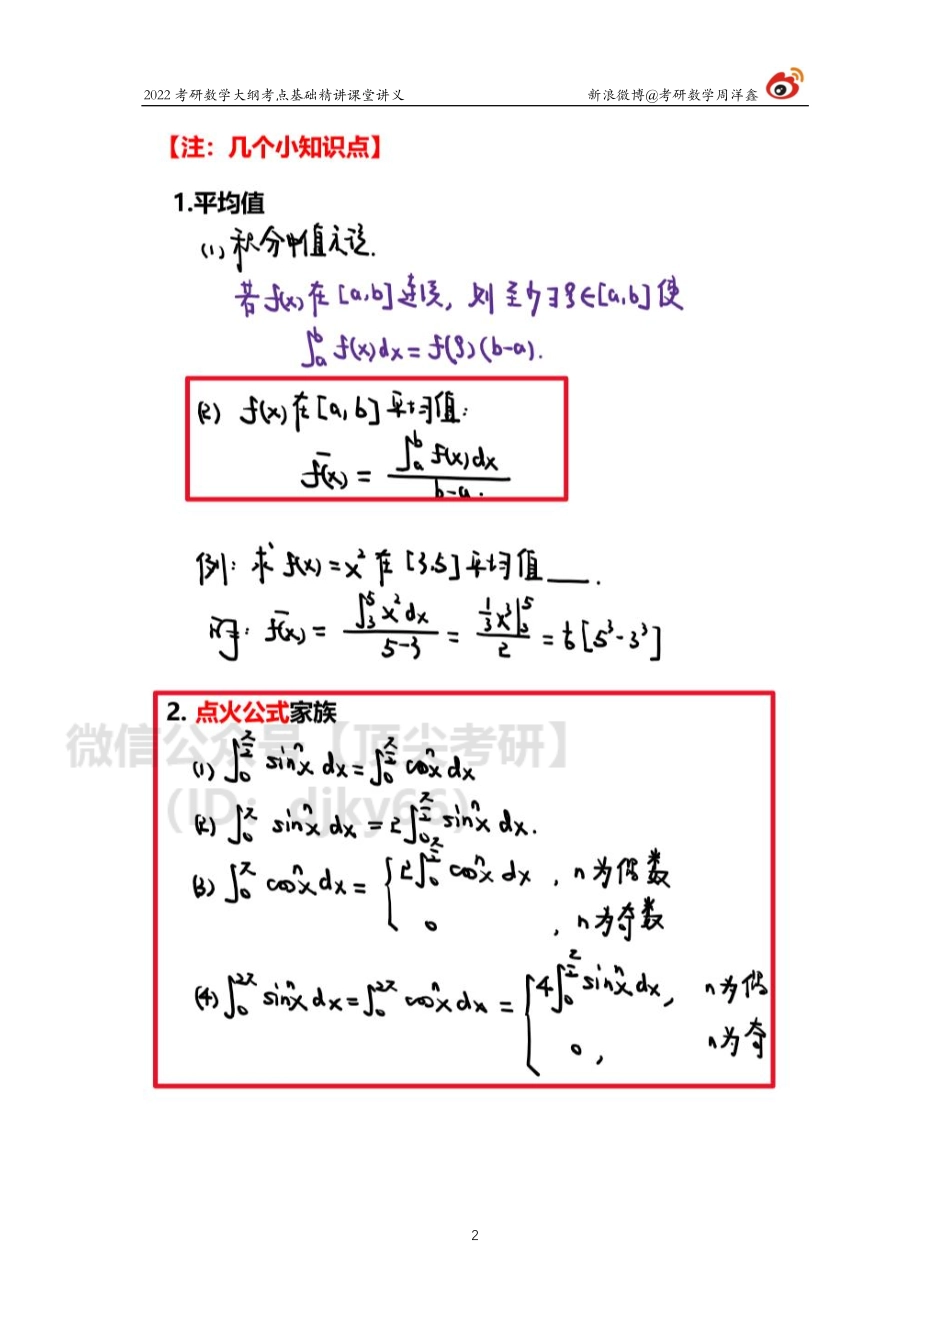 2022 考研数学大纲考点基础精讲课堂讲义 新浪微博@考研数学周洋鑫
【注：几个小知识点】
1.平均值
(1) 积分中值定理.
若 f(x) 在 [a,b] 连续, 则至少∃ξ∈[a,b] 使
∫_a^b f(x)dx = f(ξ)(b-a).
(2) f(x) 在 [a,b] 平均值:
f̄(x) = ∫_a^b f(x)dx / b-a.
例: 求 f(x)=x² 在 [3,5] 平均值 ___.
解: f̄(x) = ∫_3^5 x²dx / 5-3 = 1/3 x³|_3^5 / 2 = 1/6 [5³-3³]
2. 点火公式家族
微信公众号【顶尖考研】
(ID: djky66)
(1) ∫_0^{π/2} sinⁿx dx = ∫_0^{π/2} cosⁿx dx
(2) ∫_0^π sinⁿx dx = 2∫_0^{π/2} sinⁿx dx.
(3) ∫_0^π cosⁿx dx = { 2∫_0^{π/2} cosⁿx dx , n为偶数
0 , n为奇数
(4) ∫_0^{2π} sinⁿx dx = ∫_0^{2π} cosⁿx dx = { 4∫_0^{π/2} sinⁿx dx, n为偶
0, n为奇
2